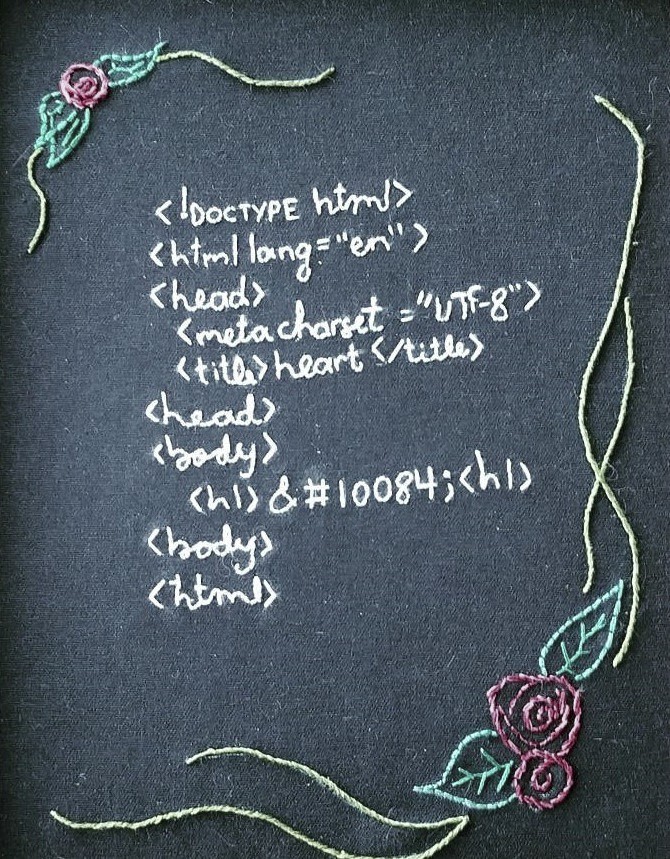 <!DOCTYPE html>
<html lang="en">
<head>
<meta charset="UTF-8">
<title>heart</title>
<head>
<body>
<h1>&#10084;<h1>
<body>
<html>